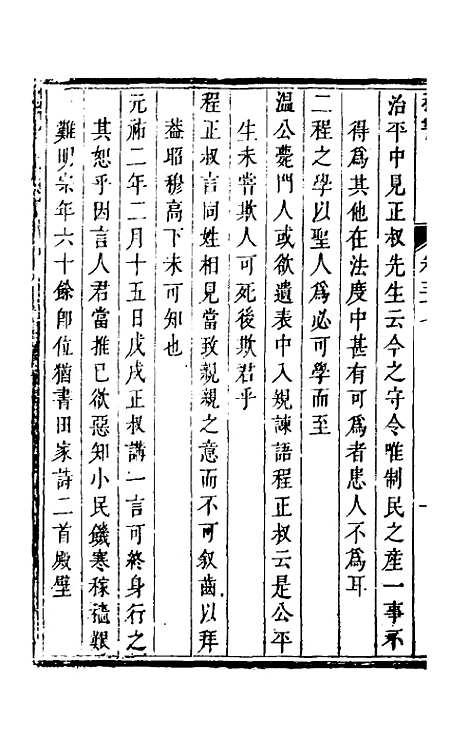 治平中見正叔先生云今之守令唯制民之產一事不
得爲其他在法度中甚有可爲者患人不爲耳
二程之學以聖人爲必可學而至
溫公薨門人或欲遺表中入規諫語程正叔云是公平
生未嘗欺人可死後欺君乎
程正叔言同姓相見當致親親之意而不可叙齒以拜
葢昭穆高下未可知也
元祐二年二月十五日戊戌正叔講一言可終身行之
其恕乎因言人君當推已欲惡知小民饑寒稼穡艱
難明宗年六十餘卽位猶書田家詩二首殿壁